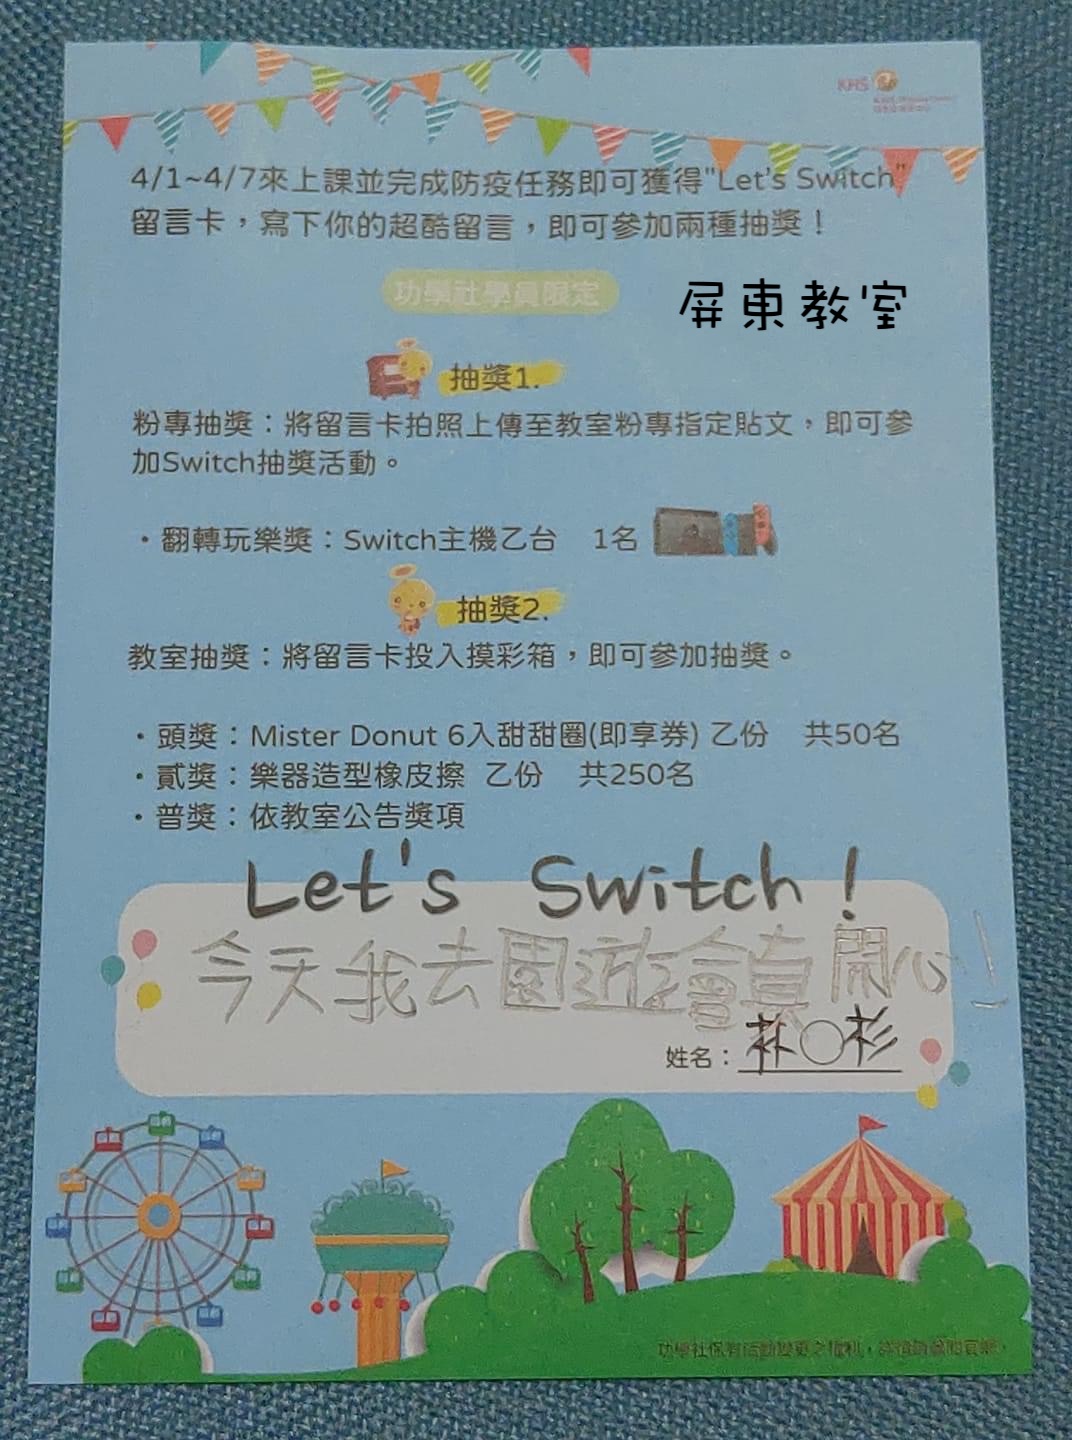 KHS
4/1~4/7來上課並完成防疫任務即可獲得"Let's Switch"
留言卡，寫下你的超酷留言，即可參加兩種抽獎！
功學社學員限定
屏東教室
抽獎1.
粉專抽獎：將留言卡拍照上傳至教室粉專指定貼文，即可參
加Switch抽獎活動。
・翻轉玩樂獎：Switch主機乙台 1名
抽獎2.
教室抽獎：將留言卡投入摸彩箱，即可參加抽獎。
・頭獎：Mister Donut 6入甜甜圈(即享券) 乙份 共50名
・貳獎：樂器造型橡皮擦 乙份 共250名
・普獎：依教室公告獎項
Let's Switch！
今天我去園遊會真開心！
姓名：林○杉
功學社保有活動變更之權利，